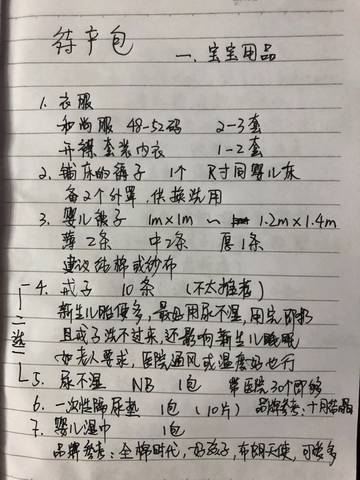 待产包
一、宝宝用品
1. 衣服
和尚服 48-52码 2-3套
开裆套装内衣 1-2套
2. 铺床的褥子 1个 尺寸同婴儿床
备2个外罩，供换洗用
3. 婴儿被子 1m×1m ~ 1.2m×1.4m
薄2条 中2条 厚1条
建议纯棉或纱布
4. 戒子 10条 (不太推荐)
新生儿胎便多，最好用尿不湿，用完即扔
且戒子洗不过来，还影响新生儿睡眠
如老人要求，医院通风或温度好也行
二选一
5. 尿不湿 NB 1包 带医院30个即够
6. 一次性隔尿垫 1包 (10片) 品牌参考：十月结晶
7. 婴儿湿巾 1包
品牌参考：全棉时代，好孩子，布朗天使，可多多